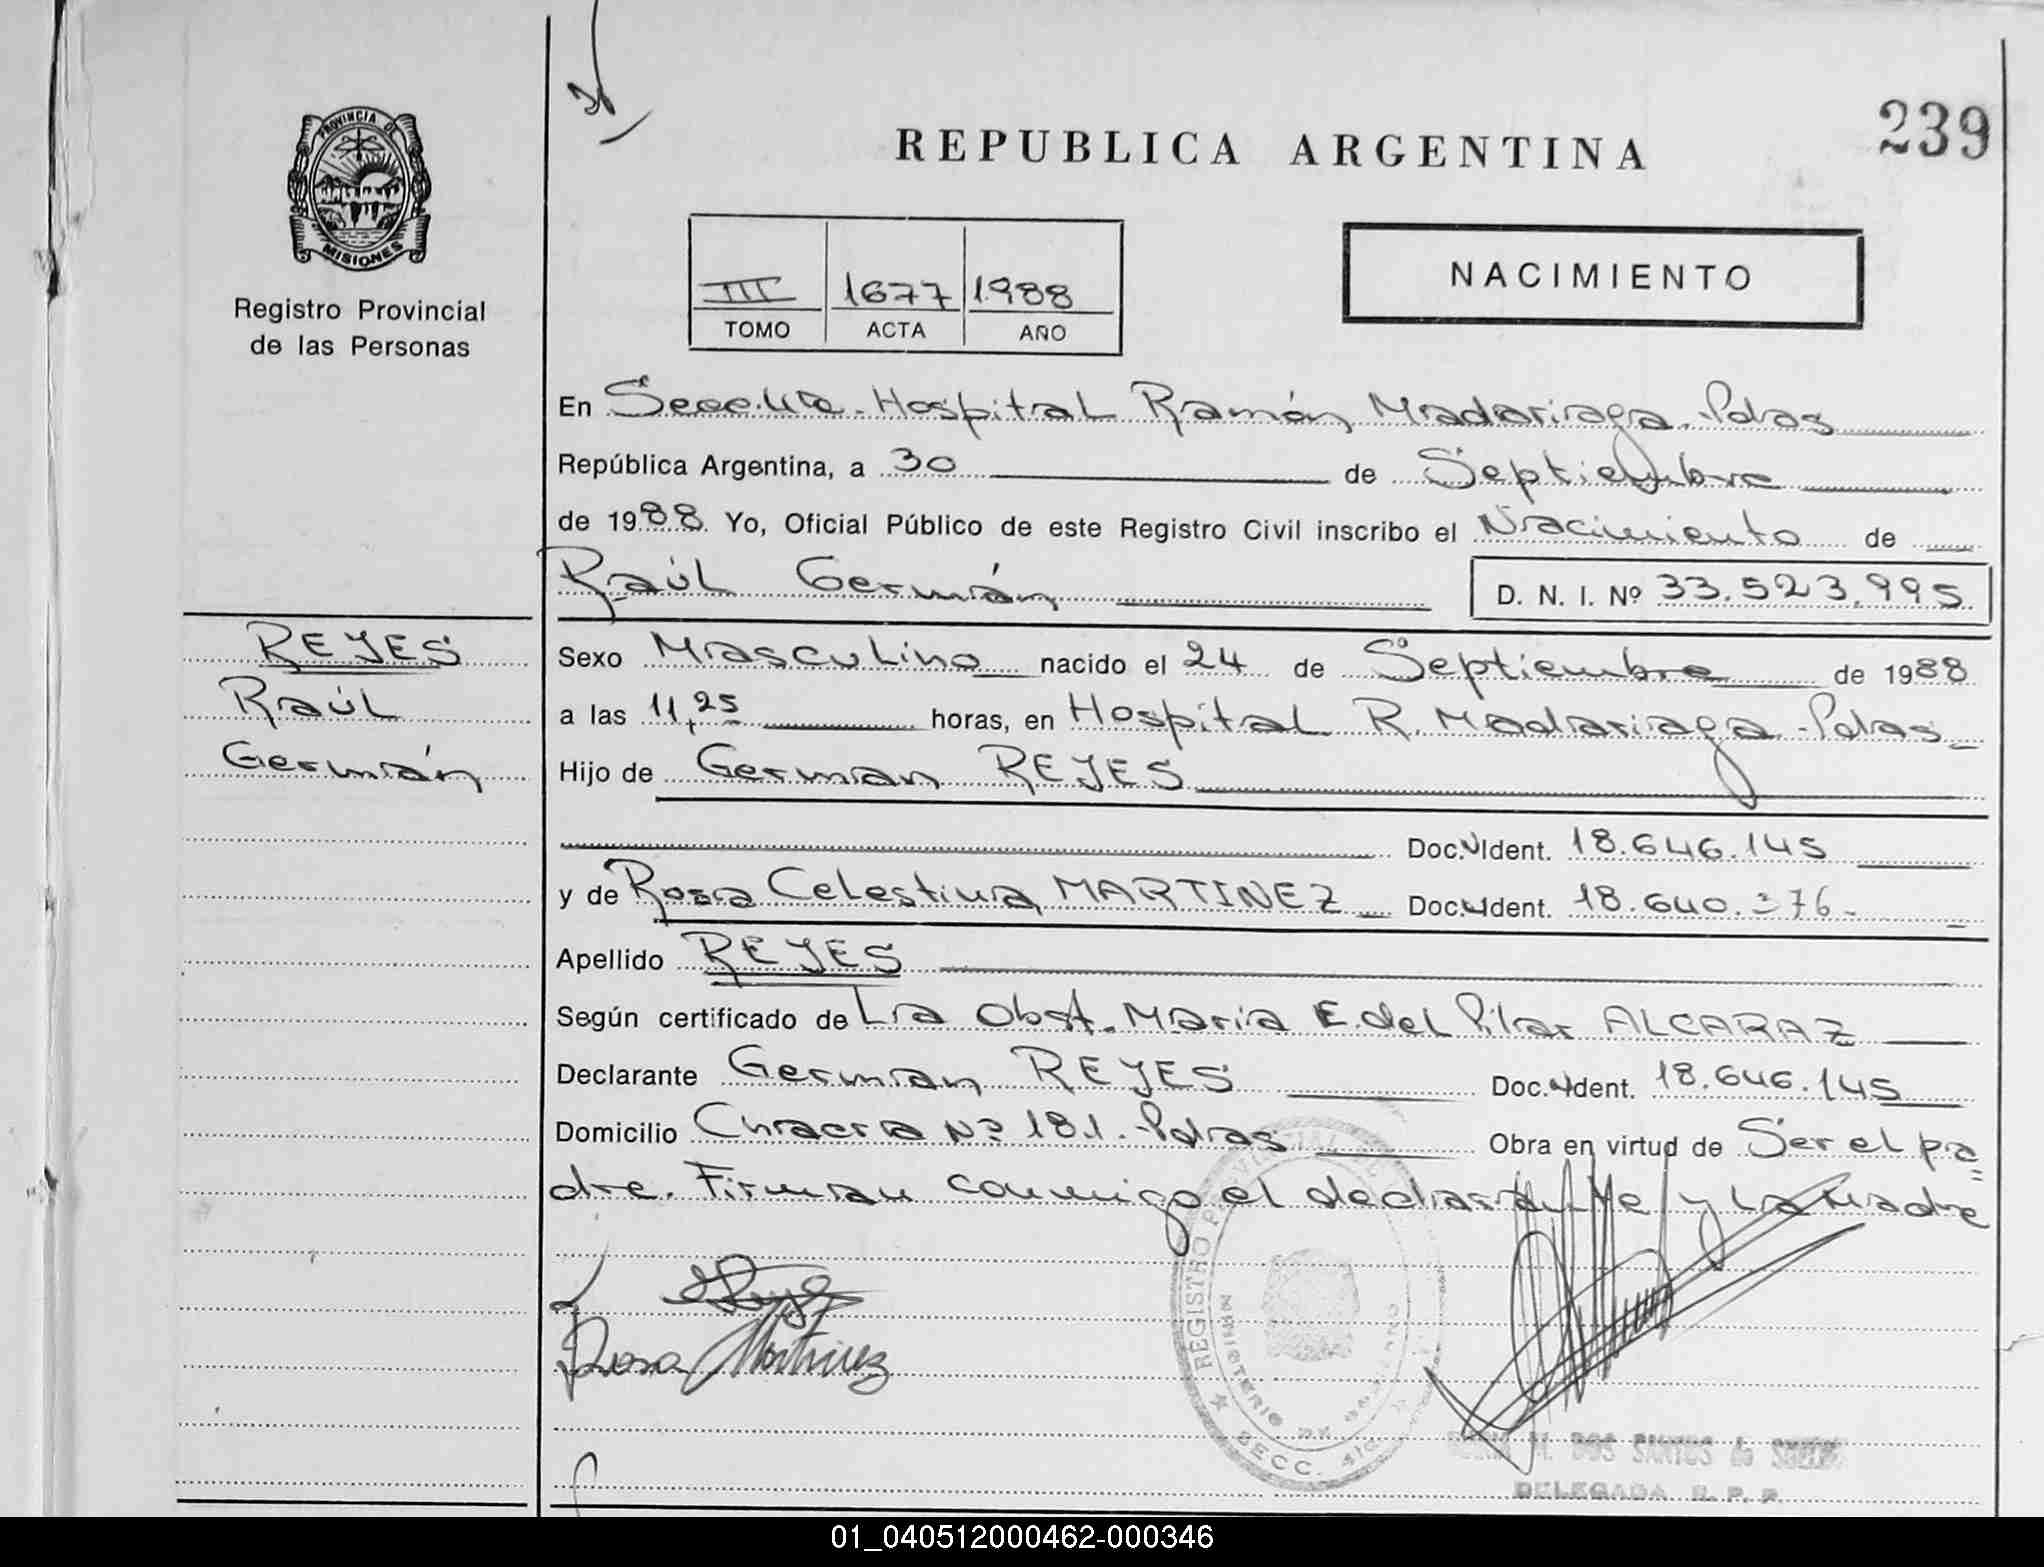 239
REPUBLICA ARGENTINA
PROVINCIA DE
MISIONES
Registro Provincial
de las Personas
III 1677 1988
TOMO ACTA AÑO
NACIMIENTO
En Secc. 4ta. Hospital Ramón Madariaga. Pdas
República Argentina, a 30 de Septiembre
de 1988. Yo, Oficial Público de este Registro Civil inscribo el Nacimiento de
Raúl Germán D. N. I. Nº 33.523.995
REYES
Raúl
Germán
Sexo Masculino nacido el 24 de Septiembre de 1988
a las 11,25 horas, en Hospital R. Madariaga - Pdas
Hijo de German REYES
Doc. Ident. 18.646.145
y de Rosa Celestina MARTINEZ Doc. Ident. 18.640.376
Apellido REYES
Según certificado de La Obst. Maria E. del Pilar ALCARAZ
Declarante German REYES Doc. Ident. 18.646.145
Domicilio Chacra Nº 181. Pdas Obra en virtud de Ser el pa=
dre. Firman conmigo el declarante y La Madre
Rosa Martinez
REGISTRO PROVINCIAL DE
MINISTERIO DE GOBIERNO
SECC. 4ta
M. DOS SANTOS de
DELEGADA R. P. P.
01_040512000462-000346